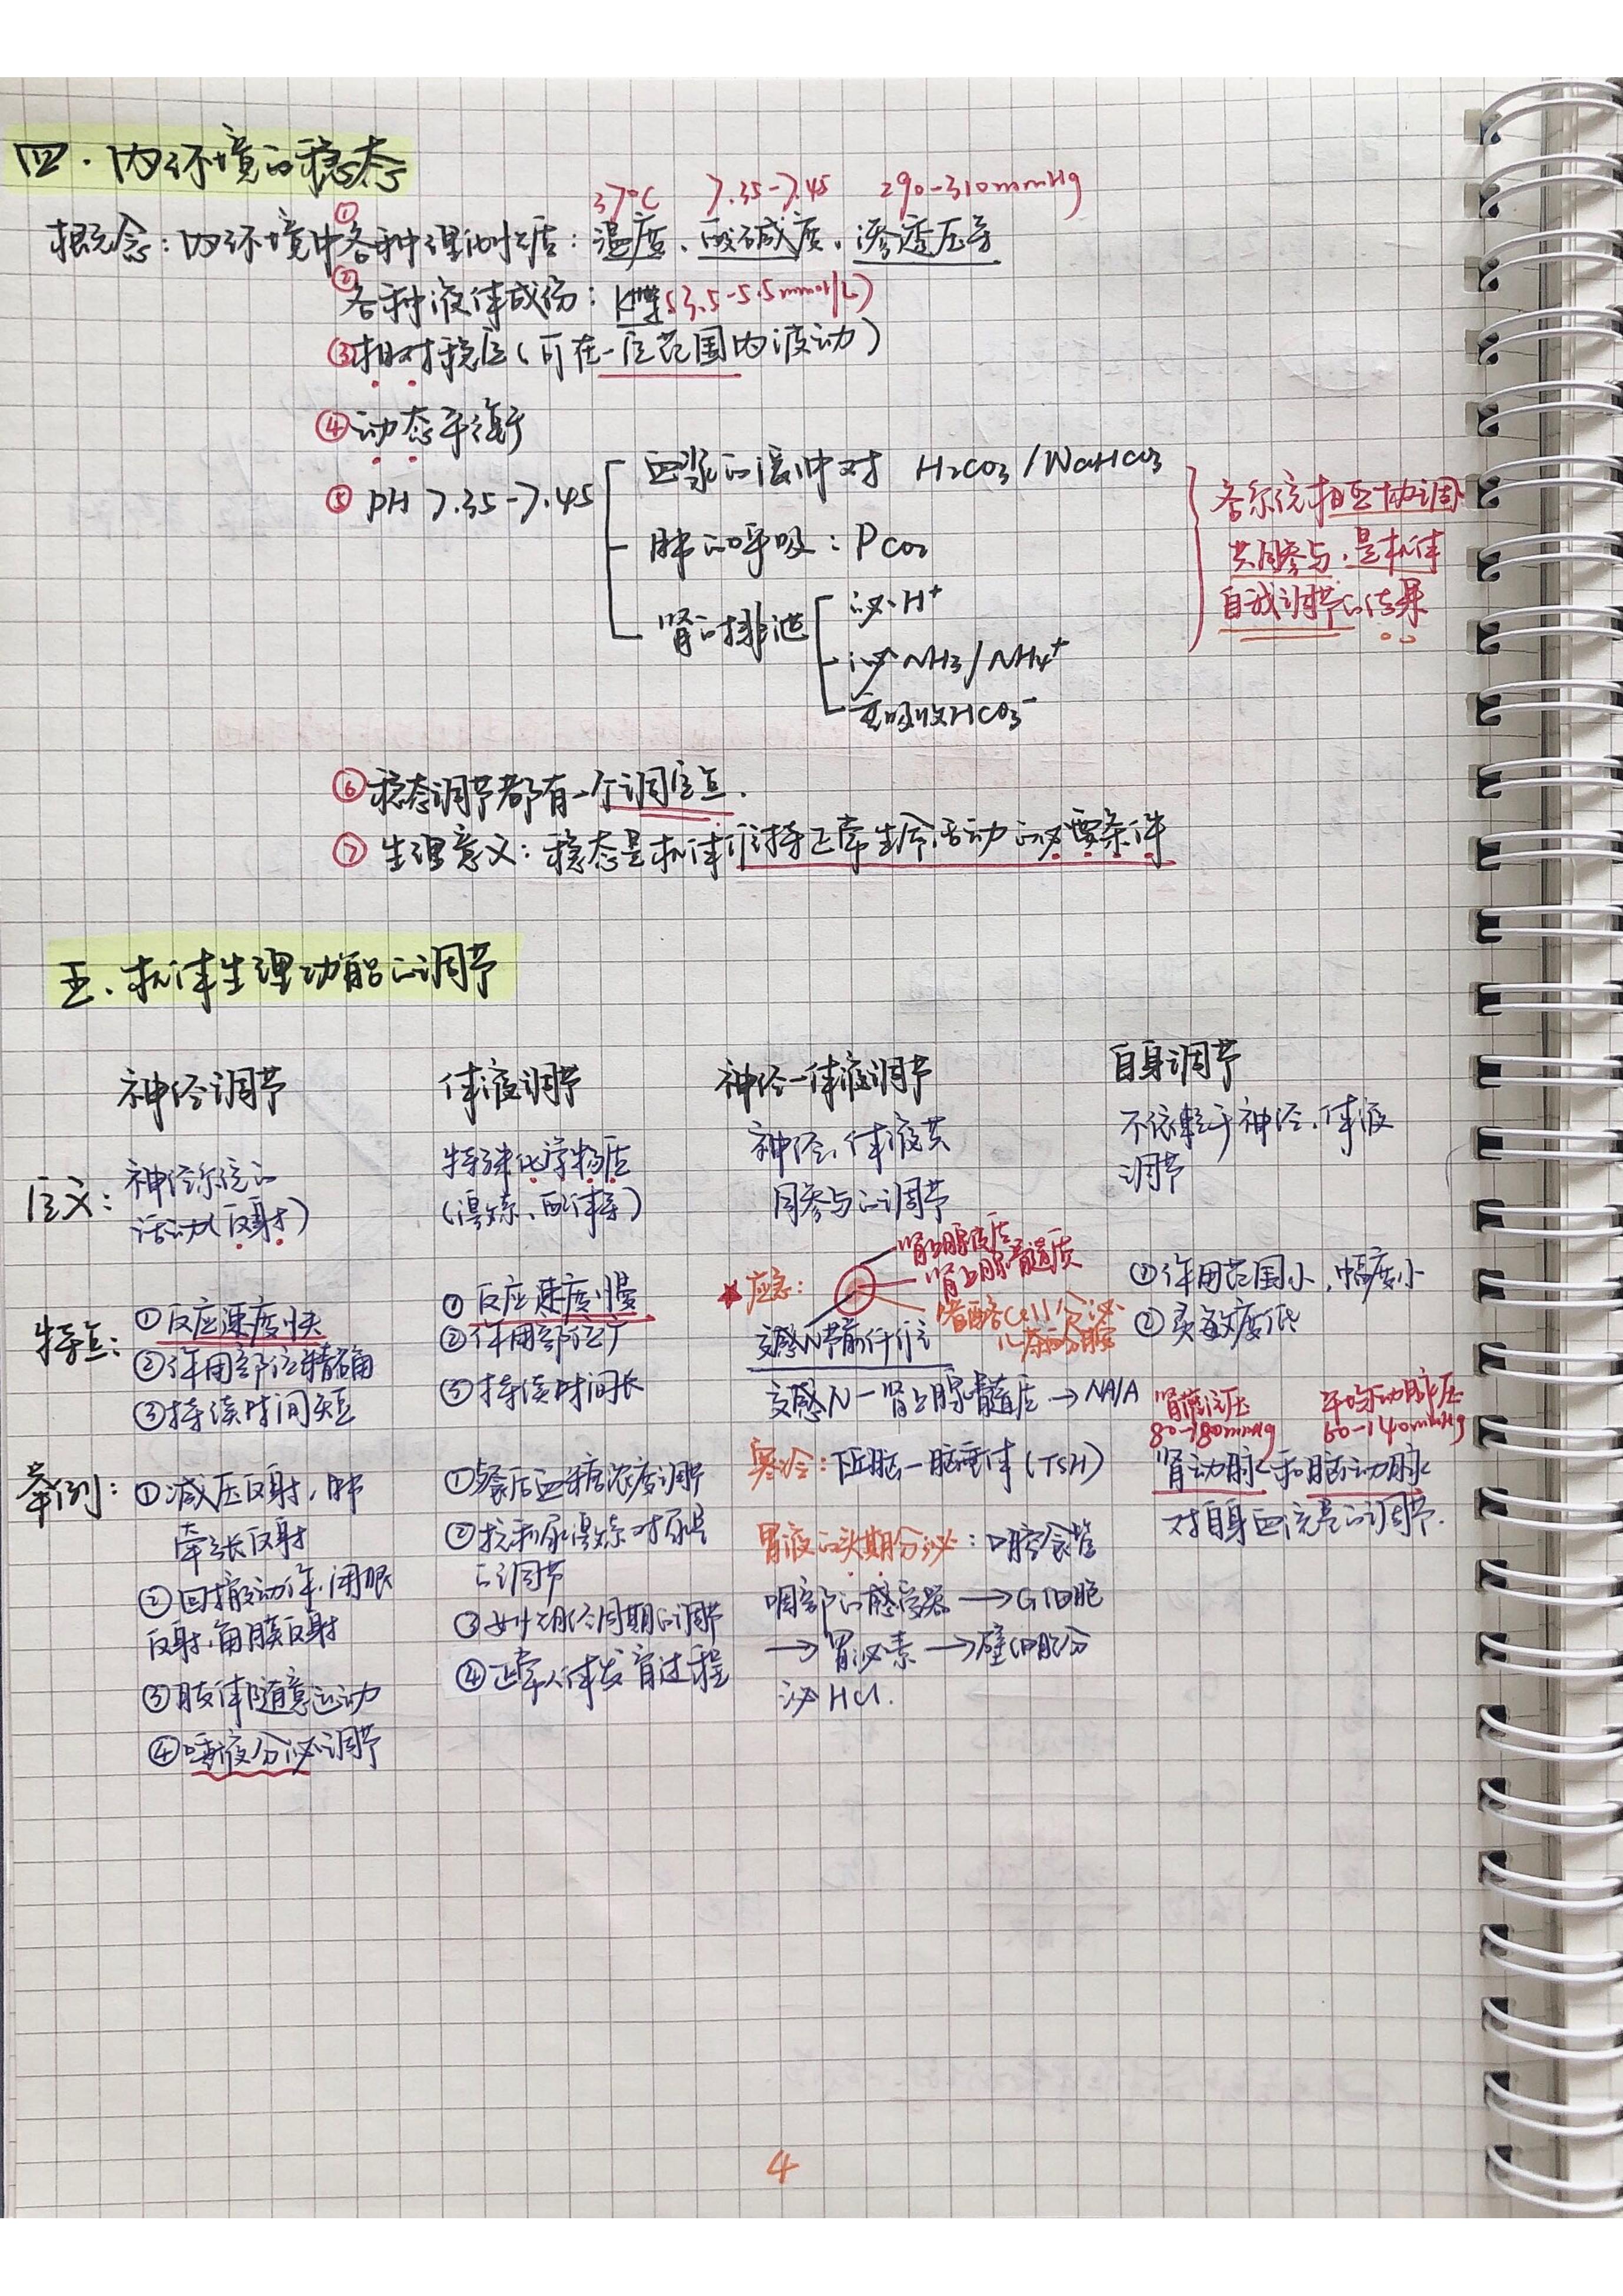 四.内环境的稳态
37℃ 7.35-7.45 290-310mmHg
概念:内环境中①各种理化性质:温度、酸碱度、渗透压等
②各种液体成份:K⁺(3.5-5.5mmol/L)
③相对稳定(可在一定范围内波动)
④动态平衡
⑤ PH 7.35-7.45
血浆的缓冲对 H₂CO₃/NaHCO₃
肺的呼吸:Pco₂
肾的排泄
泌H⁺
泌NH₃/NH₄⁺
重吸收HCO₃⁻
各系统相互协调
共同参与.是机体
自我调节的结果
⑥稳态调节都有一个调定点.
⑦生理意义:稳态是机体维持正常生命活动的必要条件
五.机体生理功能的调节
神经调节
体液调节
神经-体液调节
自身调节
定义:
神经系统的
活动(反射)
特殊化学物质
(激素、配体等)
神经、体液共
同参与的调节
不依赖于神经、体液
调节
特点:
①反应速度快
②作用部位精确
③持续时间短
①反应速度慢
②作用部位广
③持续时间长
★应急:
肾上腺皮质
肾上腺髓质
嗜铬cell分泌
儿茶酚胺
交感N节前纤维
交感N-肾上腺髓质→NA/A
①作用范围小、幅度小
②灵敏度低
举例:
①减压反射,肺
牵张反射
②回撤动作.闭眼
反射.角膜反射
③肢体随意运动
④唾液分泌调节
①餐后血糖浓度调节
②抗利尿激素对尿量
的调节
③女性月经周期的调节
④正常人体发育过程
寒冷:下丘脑-脑垂体(TSH)
胃液的头期分泌:口腔食管
咽部的感受器→G细胞
→胃泌素→壁细胞分
泌HCl.
肾灌注压
80-180mmHg
平均动脉压
60-140mmHg
肾动脉和脑动脉
对自身血流量的调节.
4